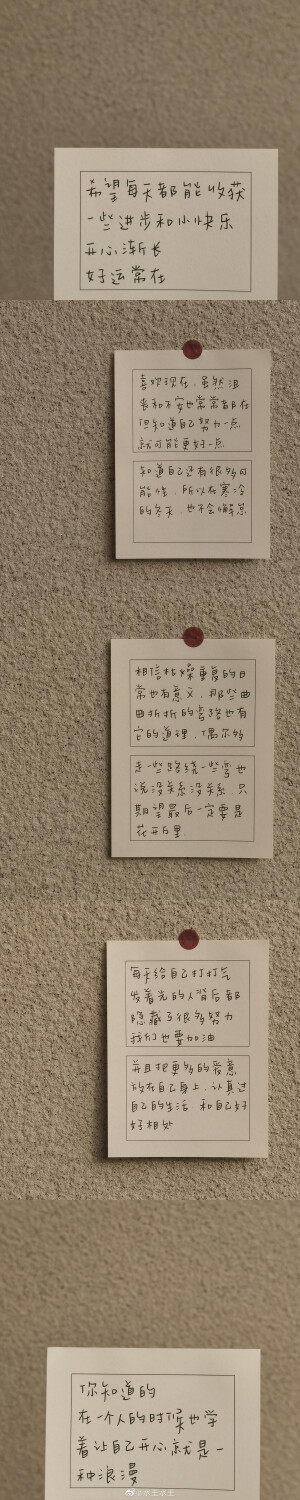 希望每天都能收获
一些进步和小快乐
开心渐长
好运常在
喜欢现在，虽然沮
丧和不安也常常都在
但知道自己努力一点
就可能更好一点
知道自己还有很多可
能性，所以在寒冷
的冬天，也不会懈怠
相信枯燥重复的日
常也有意义，那些曲
曲折折的弯路也有
它的道理，偶尔多
走一些路绕一些弯也
说没关系没关系，只
期望最后一定要是
花开万里.
每天给自己打打气
发着光的人背后都
隐藏了很多努力
我们也要加油
并且把更多的爱意
放在自己身上，认真过
自己的生活 和自己好
好相处
你知道的
在一个人的时候也学
着让自己开心就是一
种浪漫